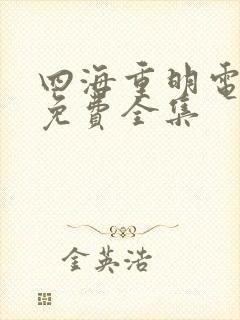 四海重明電
免費全集
金英浩